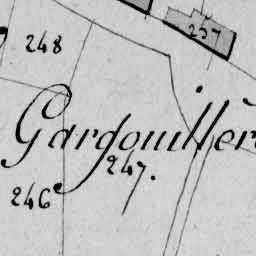 237
248
Gardouillère
247.
246